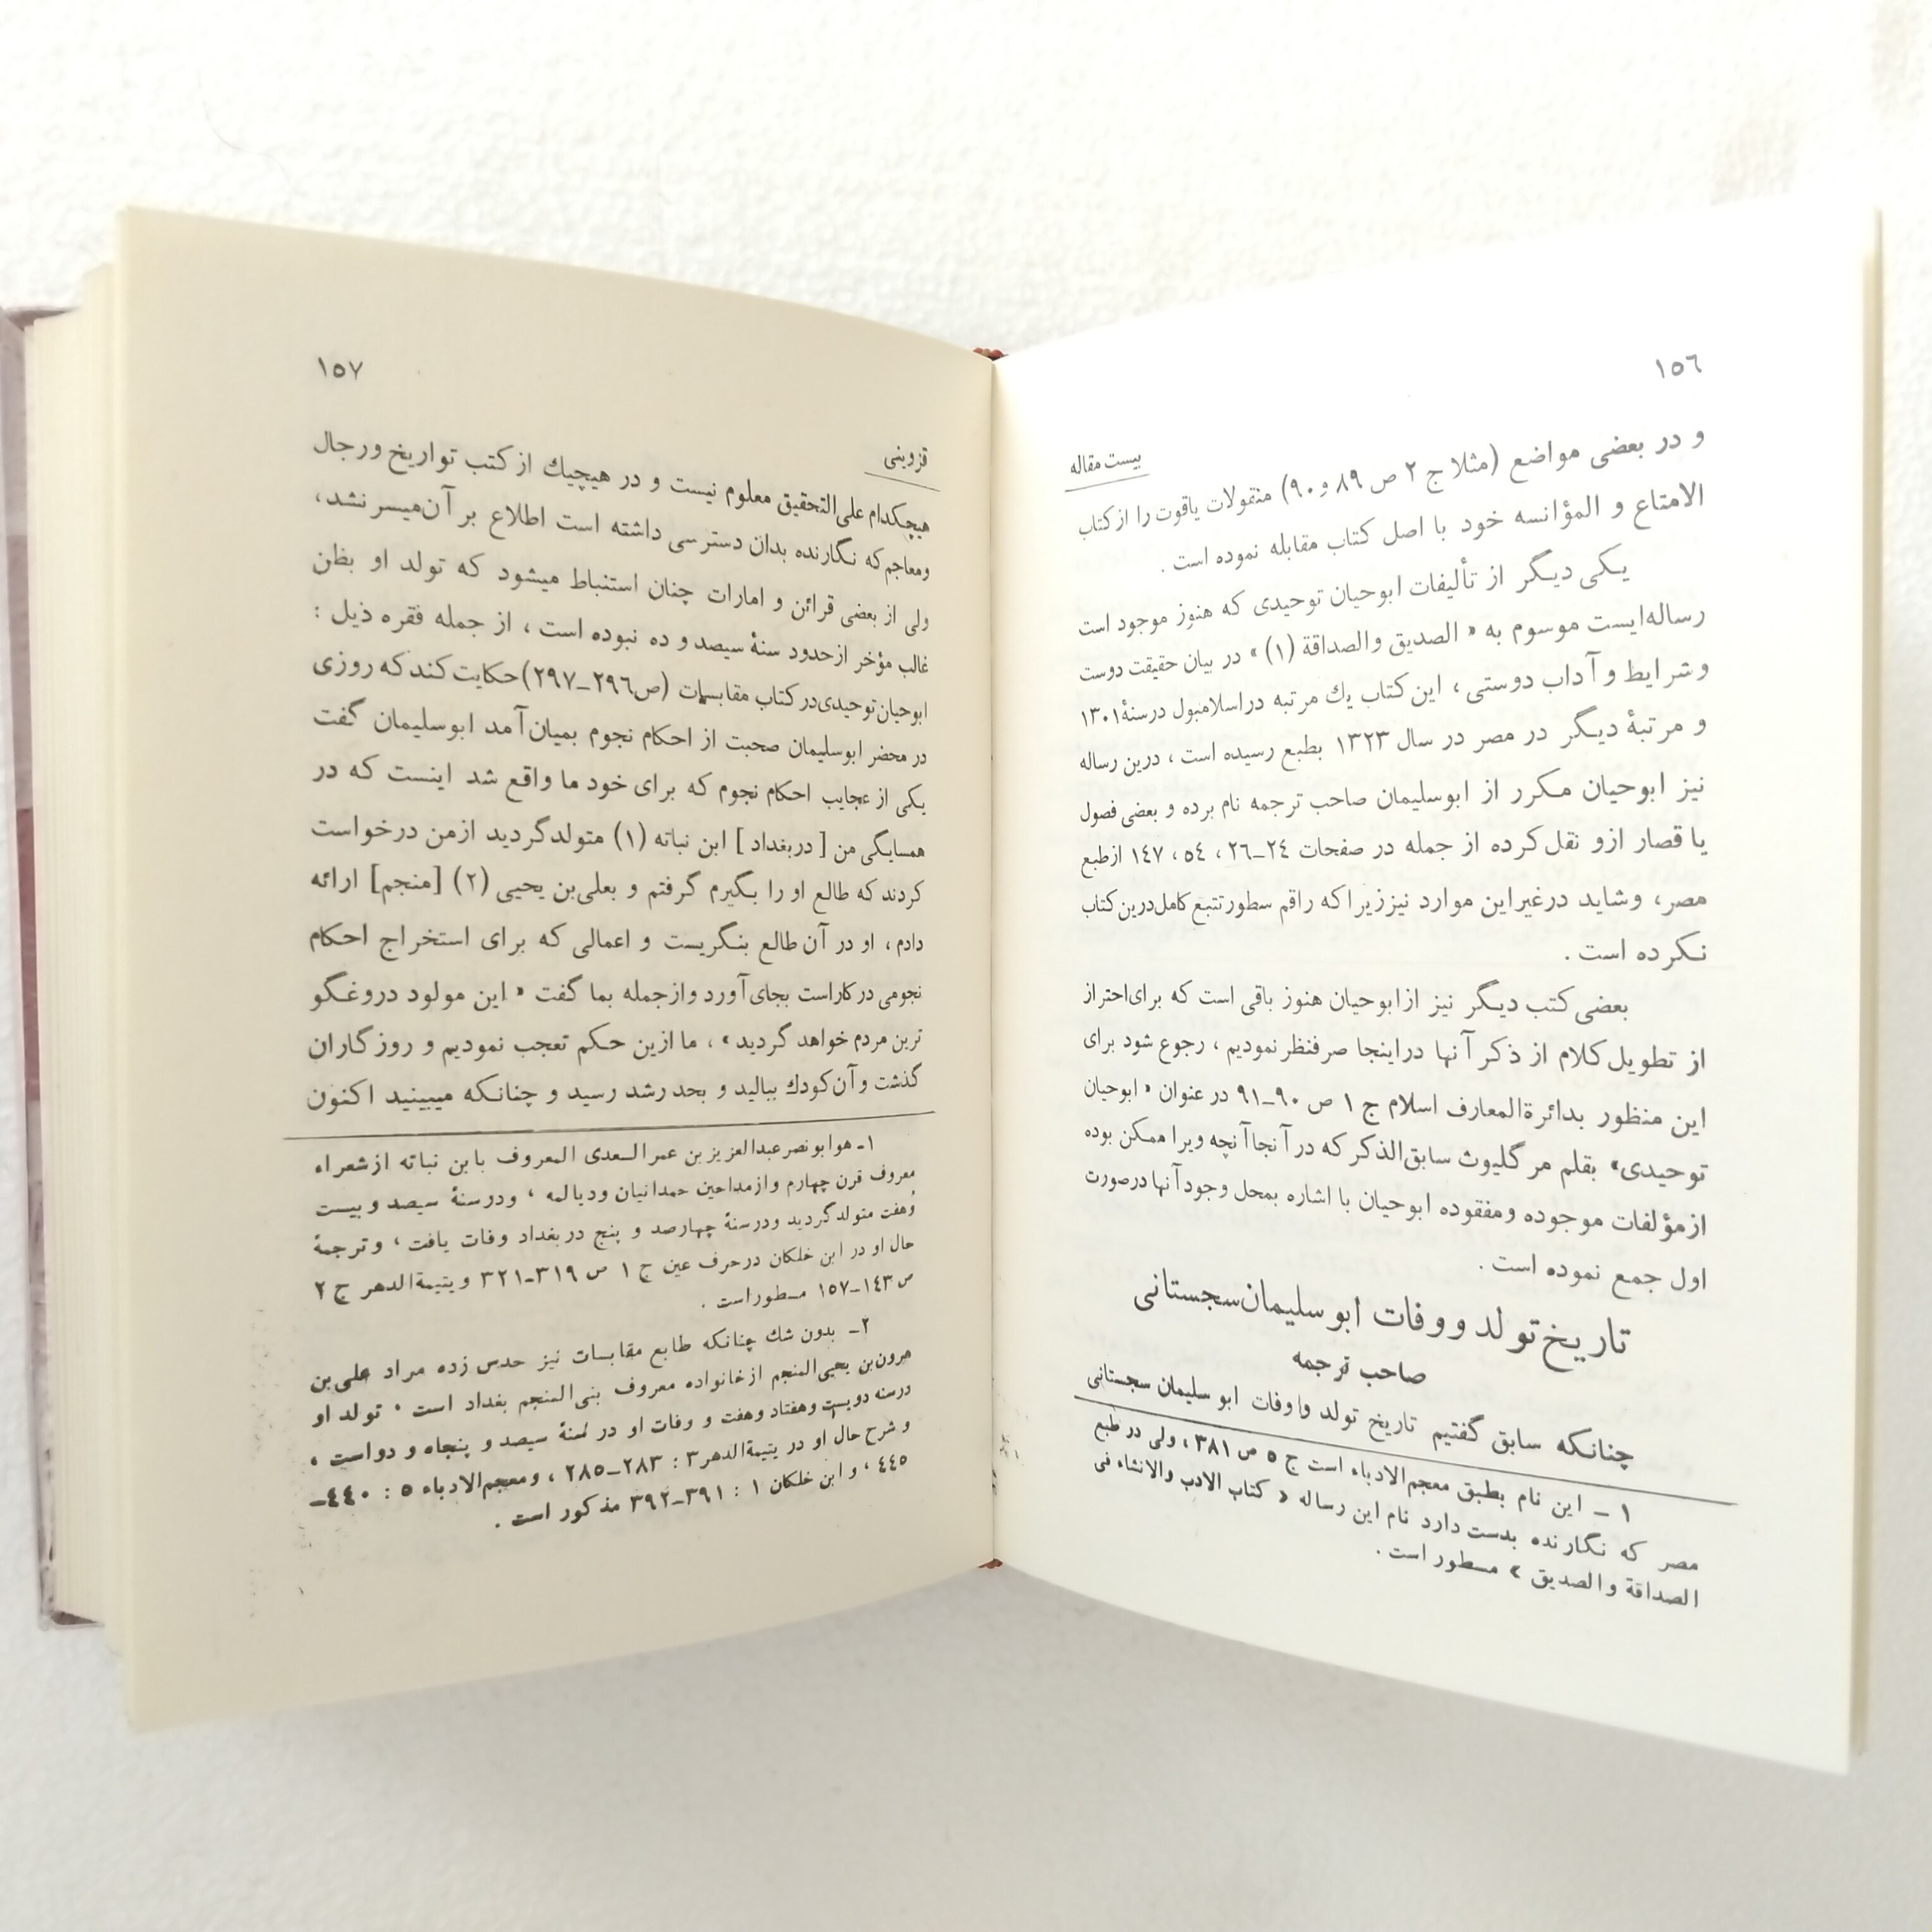 ١٥٦
بیست مقاله
و در بعضی مواضع (مثلا ج ٢ ص ٨٩ و ٩٠) منقولات یاقوت را از کتاب
الامتاع و المؤانسه خود با اصل کتاب مقابله نموده است .
یکی دیگر از تألیفات ابوحیان توحیدی که هنوز موجود است
رساله‌ایست موسوم به « الصدیق والصداقة (١) » در بیان حقیقت دوست
و شرایط و آداب دوستی ، این کتاب یك مرتبه در اسلامبول در سنۀ ١٣٠١
و مرتبۀ دیگر در مصر در سال ١٣٢٣ بطبع رسیده است ، درین رساله
نیز ابوحیان مکرر از ابوسلیمان صاحب ترجمه نام برده و بعضی فصول
یا قصار ازو نقل کرده از جمله در صفحات ٢٤-٢٦ ، ٥٤ ، ١٤٧ از طبع
مصر، و شاید در غیر این موارد نیز زیرا که راقم سطور تتبع کامل درین کتاب
نکرده است .
بعضی کتب دیگر نیز از ابوحیان هنوز باقی است که برای احتراز
از تطویل کلام از ذکر آنها در اینجا صرفنظر نمودیم ، رجوع شود برای
این منظور بدائرةالمعارف اسلام ج ١ ص ٩٠-٩١ در عنوان « ابوحیان
توحیدی» بقلم مرگلیوث سابق‌الذکر که در آنجا آنچه ویرا ممکن بوده
از مؤلفات موجوده و مفقوده ابوحیان با اشاره بمحل وجود آنها در صورت
اول جمع نموده است .
تاریخ تولد و وفات ابوسلیمان سجستانی
صاحب ترجمه
چنانکه سابق گفتیم تاریخ تولد و وفات ابوسلیمان سجستانی
١ - این نام بطبق معجم‌الادباء است ج ٥ ص ٣٨١ ، ولی در طبع
مصر که نگارنده بدست دارد نام این رساله « کتاب الادب والانشاء فی
الصداقة والصدیق » مسطور است .
١٥٧
قزوینی
هیچکدام علی‌التحقیق معلوم نیست و در هیچیك از کتب تواریخ و رجال
ومعاجم که نگارنده بدان دسترسی داشته است اطلاع بر آن میسر نشد ،
ولی از بعضی قرائن و امارات چنان استنباط میشود که تولد او بظن
غالب مؤخر از حدود سنۀ سیصد و ده نبوده است ، از جمله فقره ذیل :
ابوحیان توحیدی در کتاب مقابسات (ص ٢٩٦-٢٩٧) حکایت کند که روزی
در محضر ابوسلیمان صحبت از احکام نجوم بمیان آمد ابوسلیمان گفت
یکی از عجایب احکام نجوم که برای خود ما واقع شد اینست که در
همسایگی من [ در بغداد ] ابن نباته (١) متولد گردید از من درخواست
کردند که طالع او را بگیرم گرفتم و بعلی‌بن یحیی (٢) [منجم] ارائه
دادم ، او در آن طالع بنگریست و اعمالی که برای استخراج احکام
نجومی در کار است بجای آورد و از جمله بما گفت « این مولود دروغگو
ترین مردم خواهد گردید » ، ما ازین حکم تعجب نمودیم و روزگاران
گذشت و آن کودك ببالید و بحد رشد رسید و چنانکه میبینید اکنون
١- هو ابو نصر عبدالعزیز بن عمر السعدی المعروف بابن نباته از شعراء
معروف قرن چهارم و از مداحین حمدانیان و دیالمه ، و در سنۀ سیصد و بیست
وهفت متولد گردید ودر سنۀ چهارصد و پنج در بغداد وفات یافت ، و ترجمۀ
حال او در ابن خلکان در حرف عین ج ١ ص ٣١٩-٣٢١ و یتیمةالدهر ج ٢
ص ١٤٣-١٥٧ مسطور است .
٢- بدون شك چنانکه طابع مقابسات نیز حدس زده مراد علی بن
هرون‌بن یحیی‌المنجم از خانواده معروف بنی‌المنجم بغداد است ، تولد او
درسنه دویست وهفتاد وهفت و وفات او در سنۀ سیصد و پنجاه و دو است ،
و شرح حال او در یتیمةالدهر ٣ : ٢٨٣-٢٨٥ ، ومعجم‌الادباء ٥ : ٤٤٠-
٤٤٥ ، و ابن خلکان ١ : ٣٩١-٣٩٢ مذکور است .